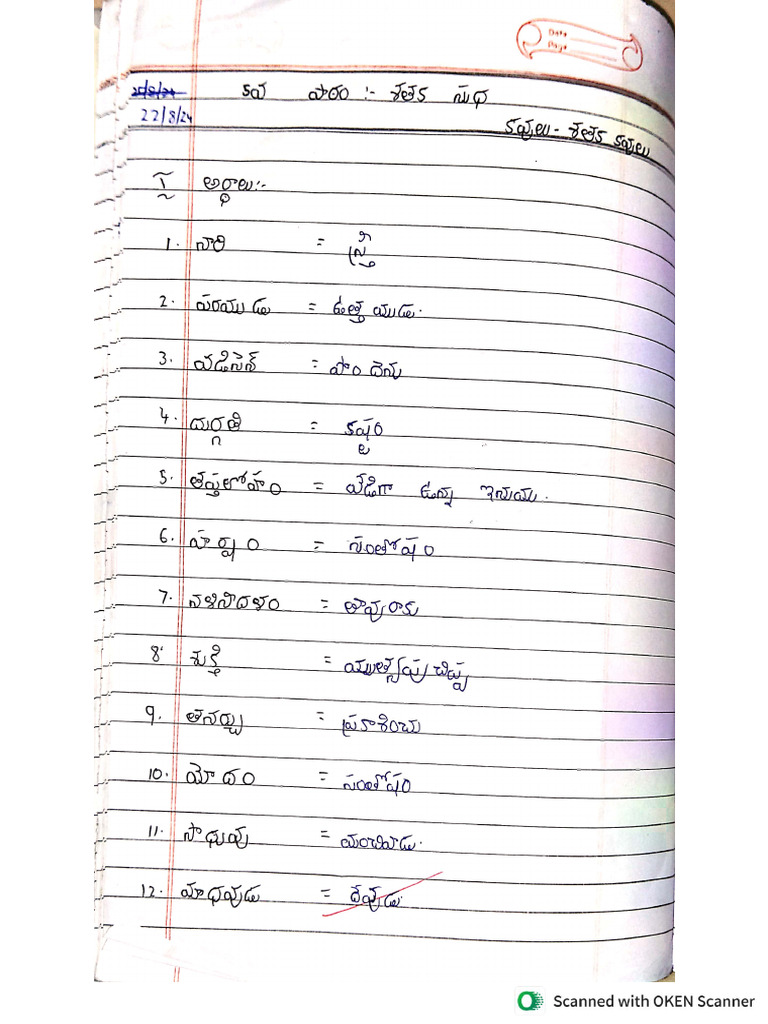 Date
Page
25/8/24
22/8/24 కవి పాఠం :- శతక సుధ
కవులు - శతక కవులు
I అర్థాలు:-
1. నారి = స్త్రీ
2. పరముడు = ఉత్తముడు.
3. పడిసెన్ = పొందెను
4. దుర్గతి = కష్టం
5. తప్తలోహం = వేడిగా ఉన్న ఇనుము.
6. హర్షం = సంతోషం
7. నళినీదళం = తామరాకు
8. శుక్తి = ముత్యపుచిప్ప
9. తనర్చు = ప్రకాశించు
10. మోదం = సంతోషం
11. సాధువు = మంచివాడు.
12. మాధవుడు = దేవుడు.
Scanned with OKEN Scanner